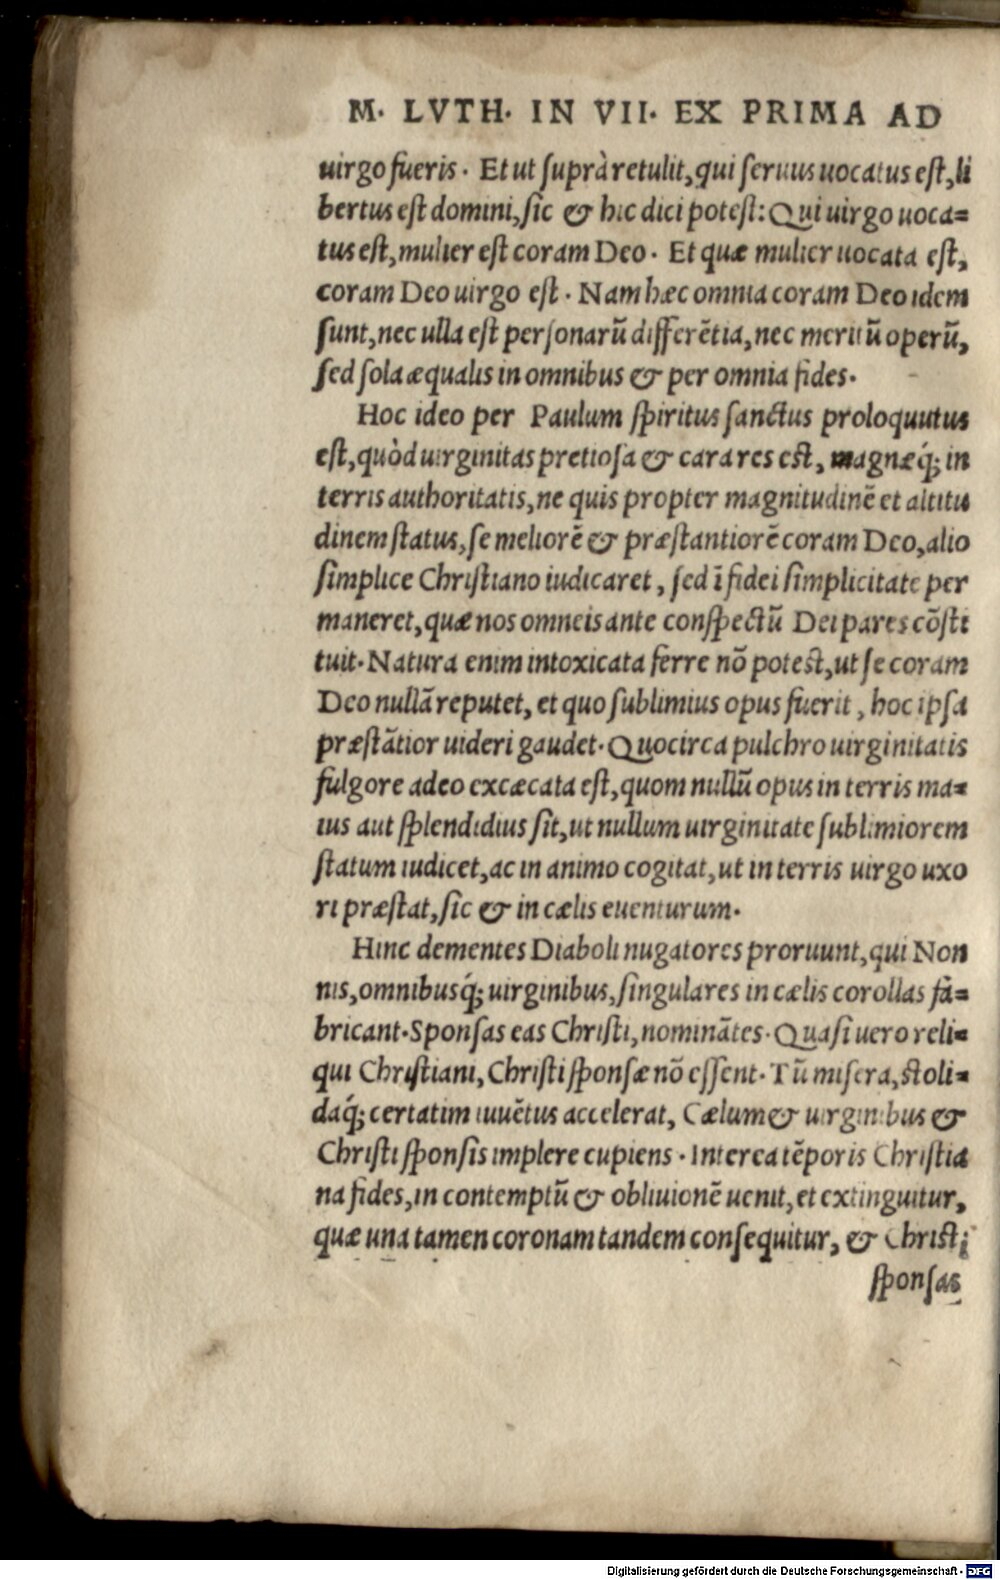 M. LVTH. IN VII. EX PRIMA AD
uirgo fueris. Et ut suprà retulit, qui seruus uocatus est, li
bertus est domini, sic & hic dici potest: Qui uirgo uoca=
tus est, mulier est coram Deo. Et quæ mulier uocata est,
coram Deo uirgo est. Nam hæc omnia coram Deo idem
sunt, nec ulla est personarũ differẽtia, nec meritũ operũ,
sed sola æqualis in omnibus & per omnia fides.
Hoc ideo per Paulum spiritus sanctus proloquutus
est, quòd uirginitas pretiosa & cara res est, magnæq́; in
terris authoritatis, ne quis propter magnitudinẽ et altitu
dinem status, se meliorẽ & præstantiorẽ coram Deo, alio
simplice Christiano iudicaret, sed ĩ fidei simplicitate per
maneret, quæ nos omneis ante conspectũ Dei pares cõsti
tuit. Natura enim intoxicata ferre nõ potest, ut se coram
Deo nullã reputet, et quo sublimius opus fuerit, hoc ipsa
præstãtior uideri gaudet. Quocirca pulchro uirginitatis
fulgore adeo excæcata est, quom nullũ opus in terris ma=
ius aut splendidius sit, ut nullum uirginitate sublimiorem
statum iudicet, ac in animo cogitat, ut in terris uirgo uxo
ri præstat, sic & in cælis euenturum.
Hinc dementes Diaboli nugatores proruunt, qui Non
nis, omnibusq́; uirginibus, singulares in cælis corollas fa=
bricant. Sponsas eas Christi, nominãtes. Quasi uero reli=
qui Christiani, Christi sponsæ nõ essent. Tũ misera, stoli=
daq́; certatim iuuẽtus accelerat, Cælum & uirginibus &
Christi sponsis implere cupiens. Interea tẽporis Christia
na fides, in contemptũ & obliuionẽ uenit, et extinguitur,
quæ una tamen coronam tandem consequitur, & Christi
sponsas
Digitalisierung gefördert durch die Deutsche Forschungsgemeinschaft - DFG